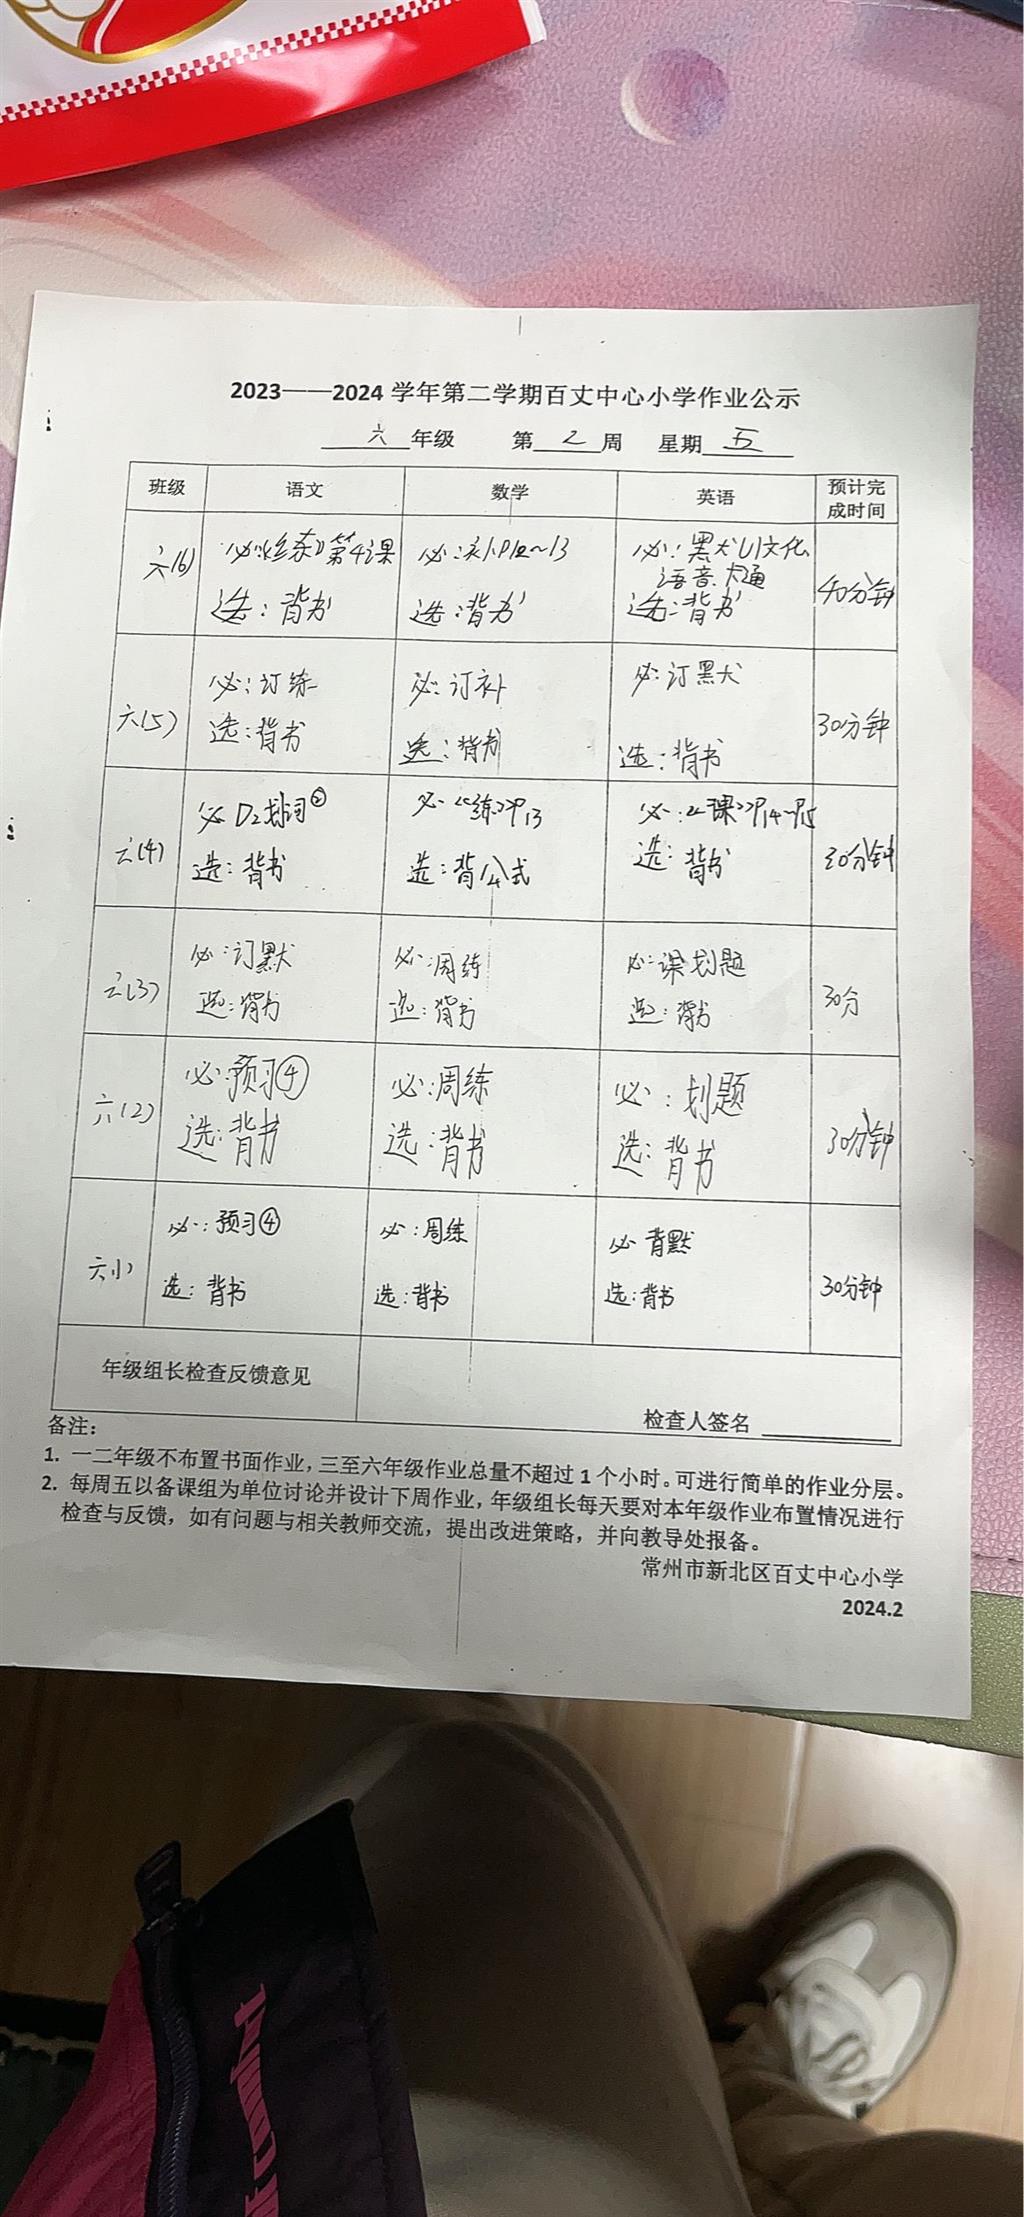 2023——2024 学年第二学期百丈中心小学作业公示
六 年级 第 2 周 星期 五
班级 语文 数学 英语 预计完成时间
六(6) 必:《练》第4课 必:补P12~13 必:默U1文化、语音、卡通 40分钟
选:背书 选:背书 选:背书
六(5) 必:订练 必:订补 必:订默 30分钟
选:背书 选:背书 选:背书
六(4) 必 划词② 必 《练》P13 必:《课》P14~P15 30分钟
选:背书 选:背公式 选:背书
六(3) 必:订默 必:周练 必:课划题 30分
选:背书 选:背书 选:背书
六(2) 必:预习④ 必:周练 必:划题 30分钟
选:背书 选:背书 选:背书
六(1) 必:预习④ 必:周练 必 背默 30分钟
选:背书 选:背书 选:背书
年级组长检查反馈意见
检查人签名
备注:
1. 一二年级不布置书面作业，三至六年级作业总量不超过 1 个小时。可进行简单的作业分层。
2. 每周五以备课组为单位讨论并设计下周作业，年级组长每天要对本年级作业布置情况进行
检查与反馈，如有问题与相关教师交流，提出改进策略，并向教导处报备。
常州市新北区百丈中心小学
2024.2